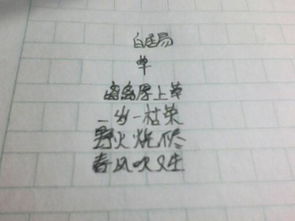 白居易
草
离离原上草
一岁一枯荣
野火烧不尽
春风吹又生